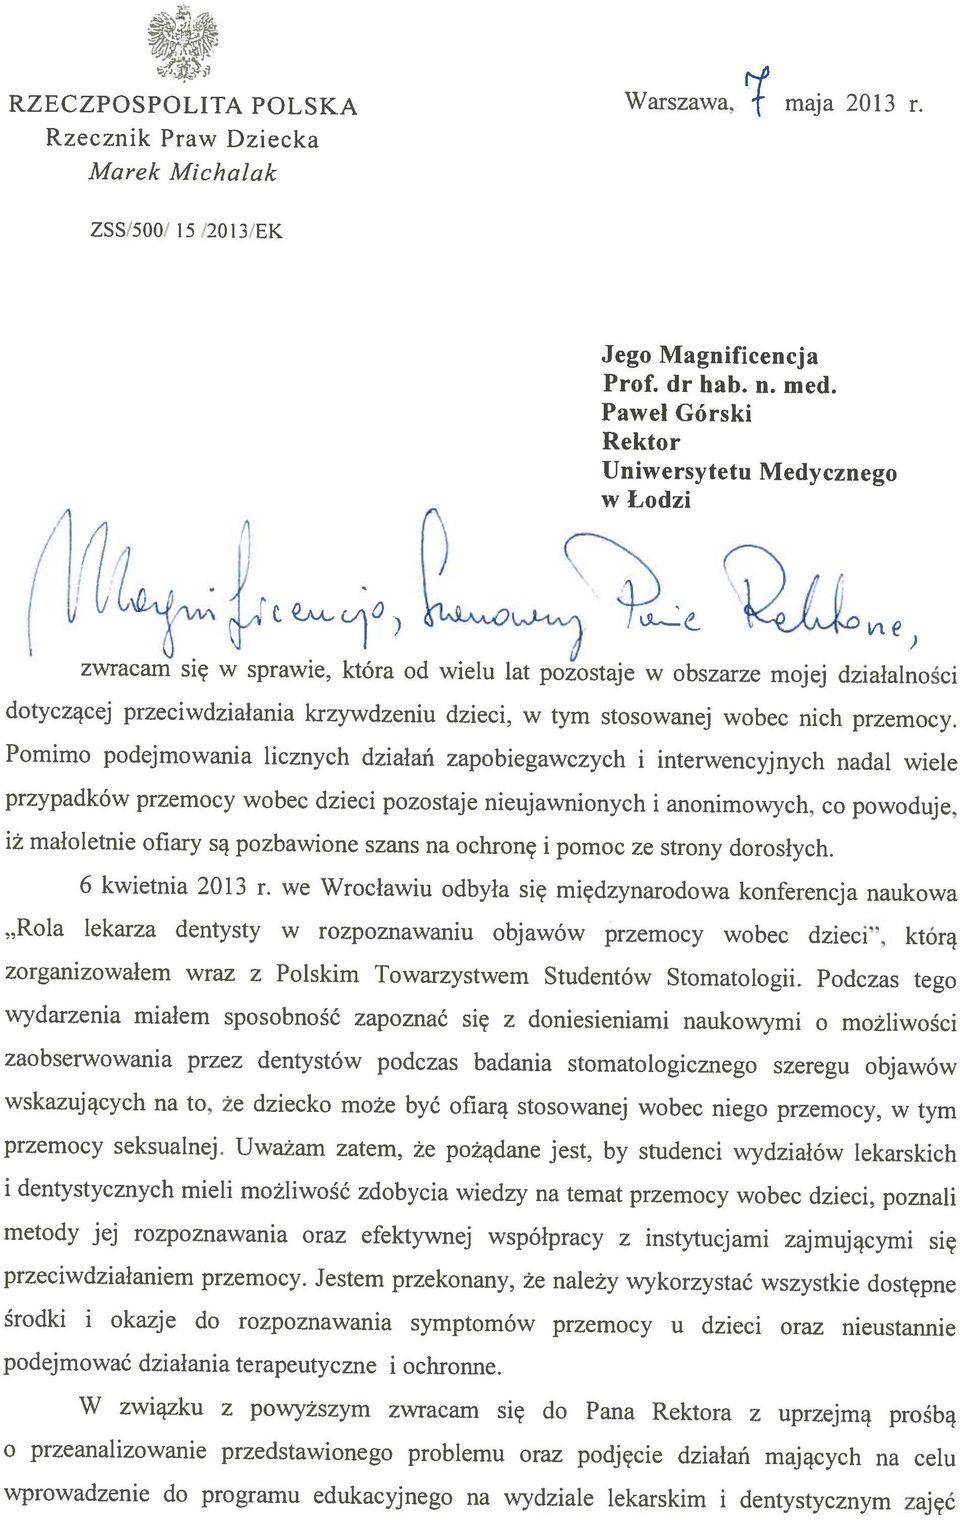 RZECZPOSPOLITA POLSKA
Rzecznik Praw Dziecka
Marek Michalak
Warszawa, 7 maja 2013 r.
ZSS/500/ 15 /2013/EK
Jego Magnificencja
Prof. dr hab. n. med.
Paweł Górski
Rektor
Uniwersytetu Medycznego
w Łodzi
Magnificencjo, Szanowny Panie Rektorze,
zwracam się w sprawie, która od wielu lat pozostaje w obszarze mojej działalności
dotyczącej przeciwdziałania krzywdzeniu dzieci, w tym stosowanej wobec nich przemocy.
Pomimo podejmowania licznych działań zapobiegawczych i interwencyjnych nadal wiele
przypadków przemocy wobec dzieci pozostaje nieujawnionych i anonimowych, co powoduje,
iż małoletnie ofiary są pozbawione szans na ochronę i pomoc ze strony dorosłych.
6 kwietnia 2013 r. we Wrocławiu odbyła się międzynarodowa konferencja naukowa
„Rola lekarza dentysty w rozpoznawaniu objawów przemocy wobec dzieci”, którą
zorganizowałem wraz z Polskim Towarzystwem Studentów Stomatologii. Podczas tego
wydarzenia miałem sposobność zapoznać się z doniesieniami naukowymi o możliwości
zaobserwowania przez dentystów podczas badania stomatologicznego szeregu objawów
wskazujących na to, że dziecko może być ofiarą stosowanej wobec niego przemocy, w tym
przemocy seksualnej. Uważam zatem, że pożądane jest, by studenci wydziałów lekarskich
i dentystycznych mieli możliwość zdobycia wiedzy na temat przemocy wobec dzieci, poznali
metody jej rozpoznawania oraz efektywnej współpracy z instytucjami zajmującymi się
przeciwdziałaniem przemocy. Jestem przekonany, że należy wykorzystać wszystkie dostępne
środki i okazje do rozpoznawania symptomów przemocy u dzieci oraz nieustannie
podejmować działania terapeutyczne i ochronne.
W związku z powyższym zwracam się do Pana Rektora z uprzejmą prośbą
o przeanalizowanie przedstawionego problemu oraz podjęcie działań mających na celu
wprowadzenie do programu edukacyjnego na wydziale lekarskim i dentystycznym zajęć